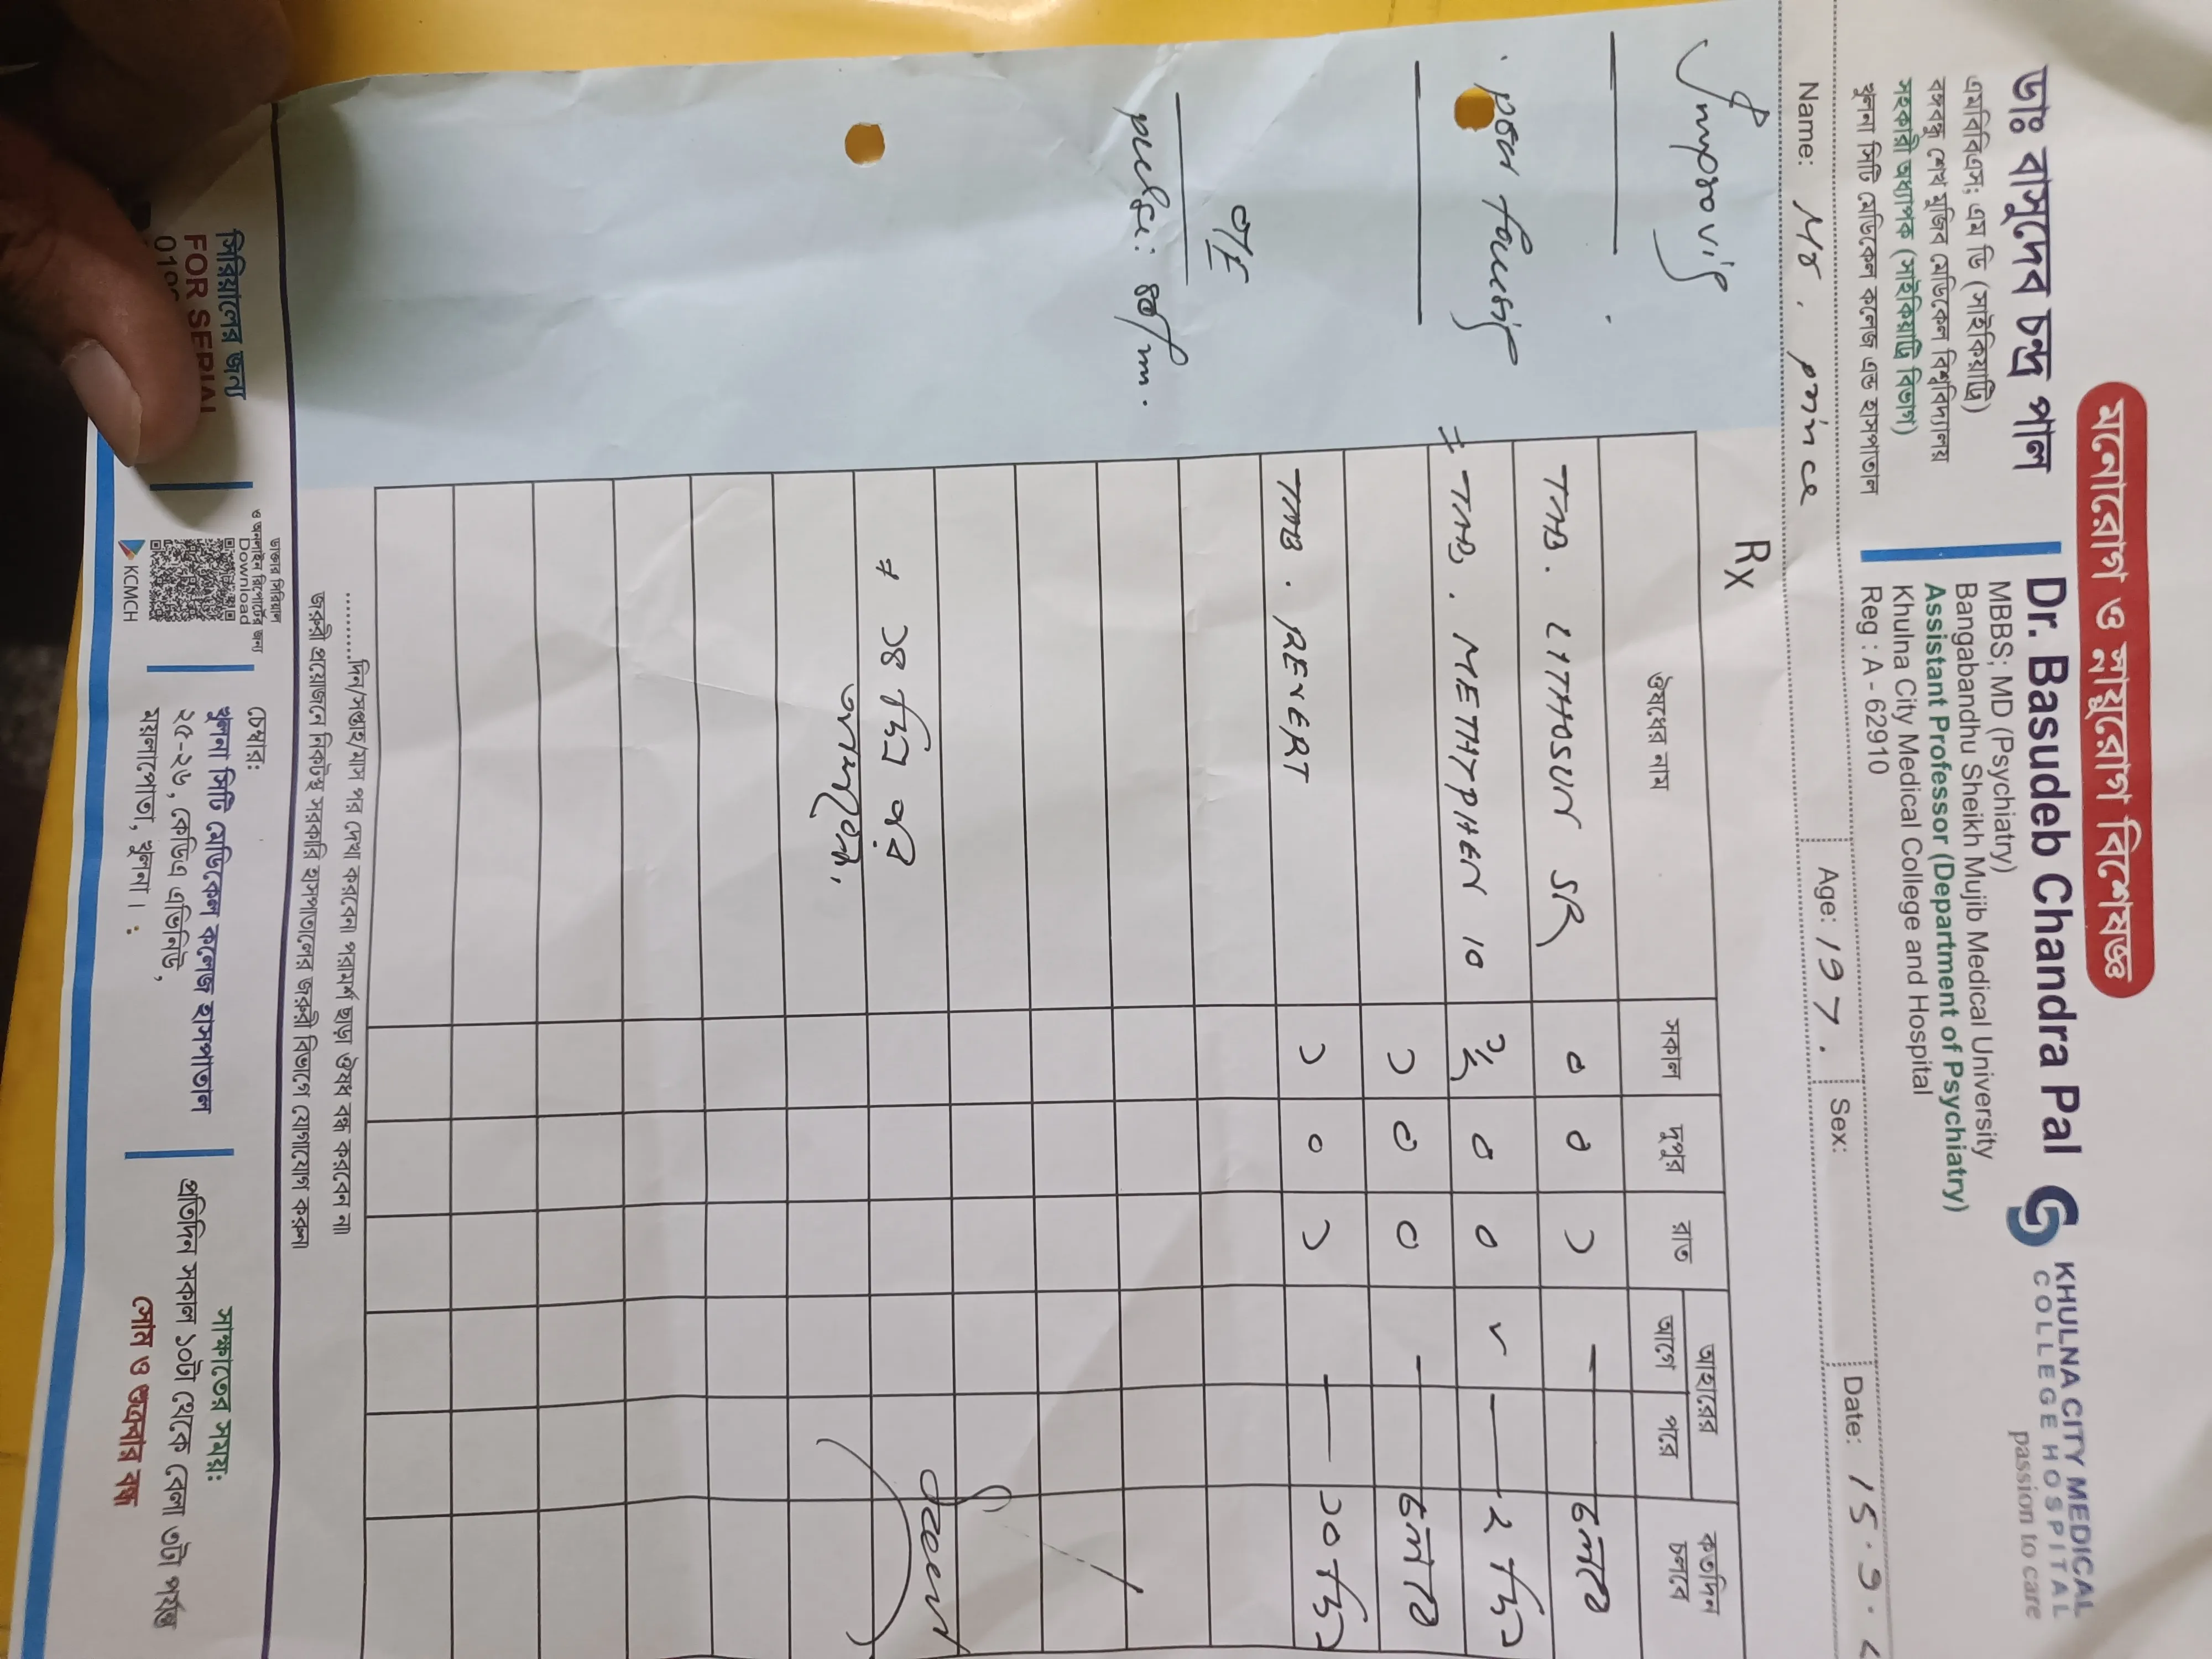 মনোরোগ ও স্নায়ুরোগ বিশেষজ্ঞ
ডাঃ বাসুদেব চন্দ্র পাল
এমবিবিএস; এম ডি (সাইকিয়াট্রি)
বঙ্গবন্ধু শেখ মুজিব মেডিকেল বিশ্ববিদ্যালয়
সহকারী অধ্যাপক (সাইকিয়াট্রি বিভাগ)
খুলনা সিটি মেডিকেল কলেজ এন্ড হাসপাতাল
Dr. Basudeb Chandra Pal
MBBS; MD (Psychiatry)
Bangabandhu Sheikh Mujib Medical University
Assistant Professor (Department of Psychiatry)
Khulna City Medical College and Hospital
Reg : A - 62910
KHULNA CITY MEDICAL
COLLEGE HOSPITAL
passion to care
Name: Mr. Prince Age: 19 Sex: Date: 15.9.
Rx
ঔষধের নাম সকাল দুপুর রাত আহারের আগে পরে কতদিন চলবে
TAB. LITHOSUN SR ০ ০ ১ — চলবে
TAB. METHYPHEN 10 ১/২ ০ ০ ✓ — ২ দিন
১ ০ ০ — চলবে
TAB. REVERT ১ ০ ১ — ১০ দিন
১৪ দিন পর
O/E
pulse: 80/m.
..........দিন/সপ্তাহ/মাস পর দেখা করবেন। পরামর্শ ছাড়া ঔষধ বন্ধ করবেন না।
জরুরী প্রয়োজনে নিকটস্থ সরকারি হাসপাতালের জরুরী বিভাগে যোগাযোগ করুন।
সিরিয়ালের জন্য
FOR SERIAL
ডাক্তার সিরিয়াল
ও অনলাইন রিপোর্টের জন্য
Download
KCMCH
চেম্বার:
খুলনা সিটি মেডিকেল কলেজ হাসপাতাল
২৫-২৬, কেডিএ এভিনিউ,
ময়লাপোতা, খুলনা।
সাক্ষাতের সময়:
প্রতিদিন সকাল ১০টা থেকে বেলা ৩টা পর্যন্ত
সোম ও শুক্রবার বন্ধ